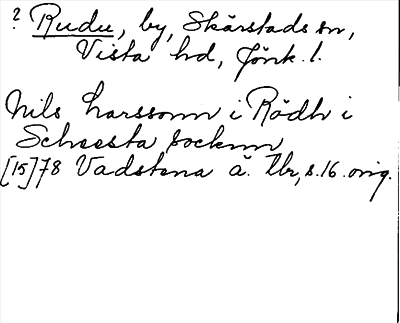 ? Rudu, by, Skärstads sn,
Vista hd, Jönk. l.
Nils Larssonn i Rödh i
Scheesta socknn
[15]78 Vadstena ä. tbr, s. 16. orig.